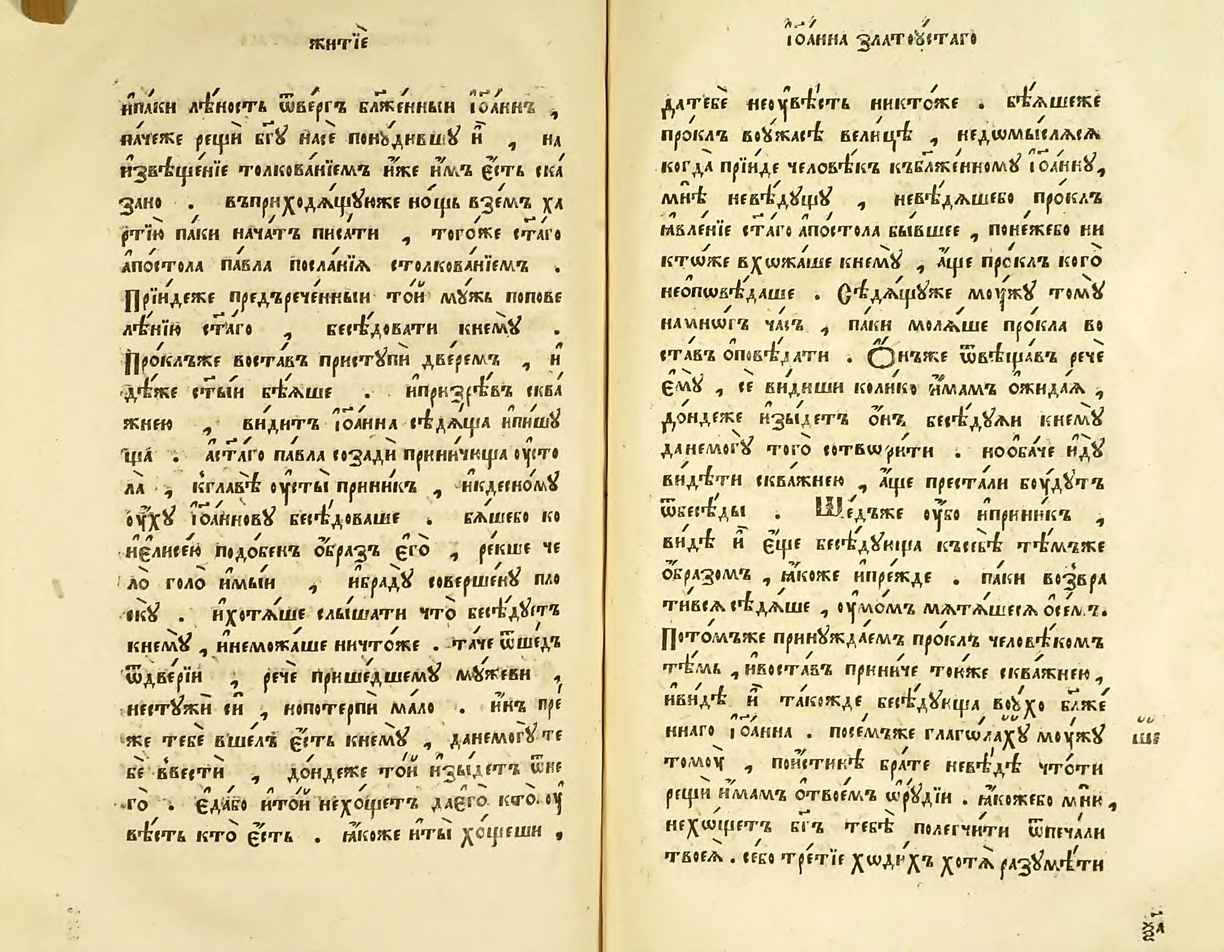 житїѐ
и҆па́ки лѣ́ность ѿве́ргъ бл҃же́нныи і҆ѡа́ннъ ,
па́чеже рещѝ бг҃ꙋ насѐ понꙋ́дившꙋ и҆̀ , на
и҆звѣще́нїе толкова́нїемъ и҆́же и҆́мъ є҆́сть ска
зано . въприходѧ́щꙋюже но́щь взе́мъ ха
ртїю̀ па́ки нача́тъ писа́ти , тогѡ́же ст҃а́го
а҆по́стола па́вла посла́нїѧ столкова́нїемъ .
Прїи́деже предърече́нныи то́й мꙋ́жь попове
лѣ́нїю ст҃а́го , бесѣ́довати кнемꙋ̀ .
Про́клъже воста́въ пристꙋпѝ две́ремъ , и҆
дѣ́же ст҃ы́и бѣ́ѧше . и҆призрѣ́въ сквá
жнею , ви́дитъ і҆ѡа́нна сѣдѧ́ща и҆пи́шꙋ
ща . а҆ст҃а́го па́вла созадѝ прини́чища оу҆сто
ла , кглавѣ̀ оу҆сты̀ прини́къ , и҆кдесно́мꙋ
оу҆́хꙋ і҆ѡа́ннову бесѣ́доваше . бѧ́шебо ко
и҆елисе́ю подо́бенъ о҆́бразъ є҆гѡ̀ , ре́кше че
ло̀ голо̀ и҆мы́и , и҆брадꙋ̀ соверше́нꙋ пло
скꙋ . и҆хотѧ́ше слы́шати что̀ бесѣ́дꙋетъ
кнемꙋ̀ , и҆неможа́ше ничто́же . та́че ѿше́дъ
ѿдве́рїи , речѐ прише́дшемꙋ мꙋ́жеви ,
нестꙋжѝ сѝ , нопотерпѝ ма́ло . и҆́нъ пре
же тебѐ вше́лъ є҆́сть кнемꙋ̀ , данемогꙋ̀ те
бѐ ввестѝ , до́ндеже то́й и҆зы́детъ ѿне
го̀ . є҆да́бо и҆то́й нехо́щетъ даєго̀ кто̀ оу҆
вѣ́сть кто̀ є҆́сть . ꙗ҆́коже и҆ты̀ хо́щеши ,
і҆ѡа́нна златоу́стаго
датебѐ неоу҆вѣ́сть никто́же . бѣ́ѧшеже
про́клъ воу҆́жасѣ вели́цѣ , недѡмы́слѧсѧ
когда̀ прїи́де человѣ́къ къблаже́нномꙋ і҆ѡа́ннꙋ,
мнѣ̀ невѣ́дꙋщꙋ , невѣ́дѧшебо про́клъ
ꙗ҆вле́нїе ст҃а́го а҆по́стола бы́вшее , поне́жебо ни
ктѡ́же вхѡжа́ше кнемꙋ̀ , а҆́ще про́клъ кого̀
неопѡвѣ́даше . Сѣдѧ́щꙋже моу́жꙋ томꙋ̀
намно́гъ ча́съ , па́ки молѧ́ше про́кла во
ста́въ оповѣ́дати . Ѻ҆́нъже ѿвѣща́въ речѐ
є҆мꙋ̀ , сѐ ви́диши коли́ко и҆́мамъ ѻ҆жида́ѧ ,
до́ндеже и҆зы́детъ ѻ҆́нъ бесѣ́дꙋѧи кнемꙋ̀
данемогꙋ̀ того̀ сотвѡри́ти . нооба́че и҆дꙋ̀
ви́дѣти сква́жнею , а҆́ще преста́ли боу́дꙋтъ
ѿбесѣ́ды . Ше́дъже оу҆́бо и҆прини́къ ,
ви́дѣ и҆̀ є҆щѐ бесѣ́дꙋюща къ́себѣ тѣ́мъже
о҆́бразомъ , ꙗ҆́коже и҆пре́жде . па́ки возвра
ти́всѧ сѣдѧ́ше , оу҆мо́мъ мѧтѧ́шесѧ ѻ҆се́мъ.
Пото́мъже принꙋжда́емъ про́клъ человѣ́комъ
тѣ́мь , и҆воста́въ прини́че то́юже сква́жнею ,
и҆ви́дѣ и҆̀ тако́жде бесѣ́дꙋюща воу́хо бл҃же
ннаго і҆ѡа́нна . посе́мъже глаго́лахꙋ моу́жꙋ
томоу̀ , пои́стинѣ бра́те невѣ́дѣ что̀ти
рещѝ и҆́мамъ ѻ҆твое́мъ ѡ҆рꙋ́дїи . ꙗ҆́кожебо мни́ю ,
нехѡ́щетъ бг҃ъ тебѣ̀ полегчи́ти ѿпеча́ли
твоеѧ̀ . се́бо тре́тїе хѡди́хъ хотѧ̀ разꙋмѣ́ти